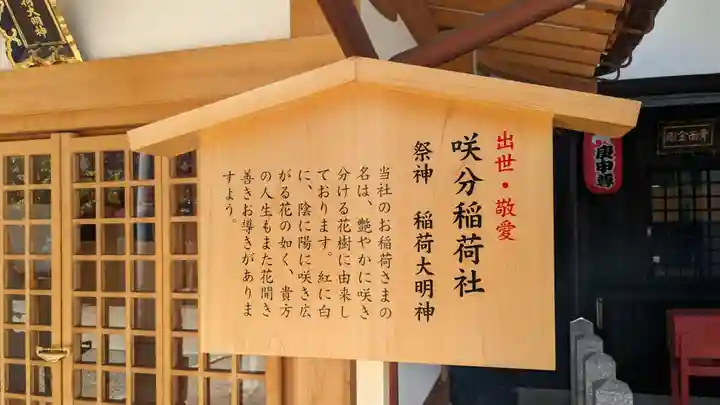 出世・敬愛
咲分稲荷社
祭神　稲荷大明神
当社のお稲荷さまの
名は、艶やかに咲き
分ける花樹に由来し
ております。紅に白
に、陰に陽に咲き広
がる花の如く、貴方
の人生もまた花開き
善きお導きがありま
すよう。
荷大明神
庚申尊
青面金剛